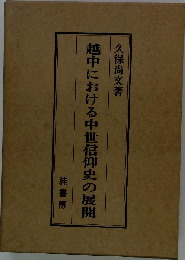 久保尚文著
越中における中世信仰史の展開
桂書房